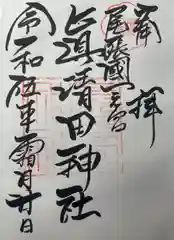 奉拝
尾張國一宮
眞清田神社
令和伍年霜月廿日